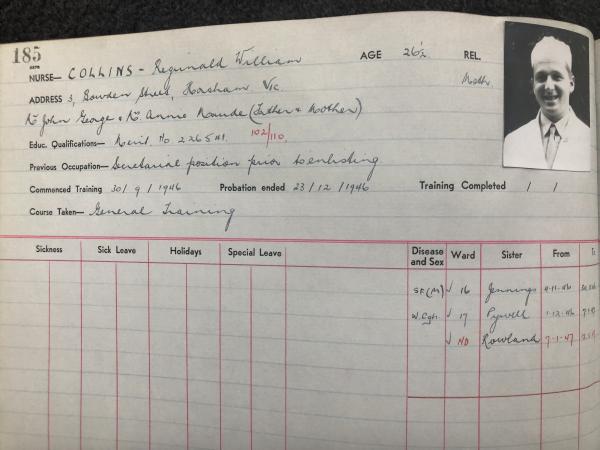 185
NURSE— COLLINS - Reginald William AGE 26½ REL.
ADDRESS 3, Bowden Street, Horsham Vic. Meth.
Mr John George & Mrs. Annie Maude (Father & Mother)
Educ. Qualifications— Merit. No 102/110
Previous Occupation— Secretarial position prior to enlisting
Commenced Training 30/9/1946 Probation ended 23/12/1946 Training Completed / /
Course Taken— General Training
Sickness Sick Leave Holidays Special Leave Disease and Sex Ward Sister From
S.F.(M) √ 16 Jennings 4-11-46
W.Cgh. √ 17 Pywell 1-12-46
√ ND Rowland 7-1-47